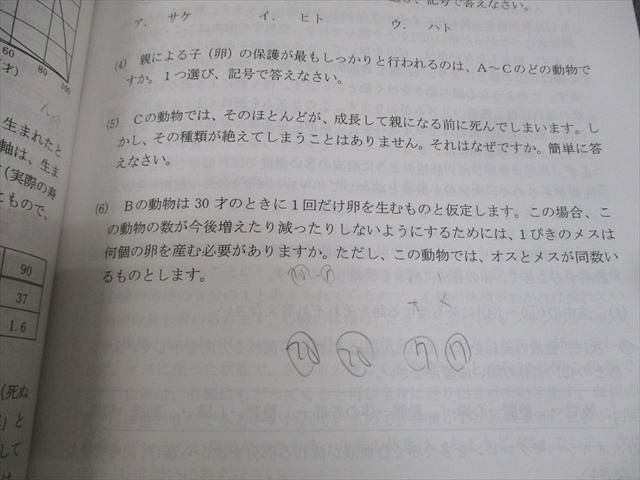 び、記号で答えなさい。
ア． サケ イ． ヒト ウ． ハト
(4) 親による子（卵）の保護が最もしっかりと行われるのは、A～Cのどの動物で
すか。1つ選び、記号で答えなさい。
(5) Cの動物では、そのほとんどが、成長して親になる前に死んでしまいます。し
かし、その種類が絶えてしまうことはありません。それはなぜですか。簡単に答
えなさい。
(6) Bの動物は30才のときに1回だけ卵を生むものと仮定します。この場合、こ
の動物の数が今後増えたり減ったりしないようにするためには、1ぴきのメスは
何個の卵を産む必要がありますか。ただし、この動物では、オスとメスが同数い
るものとします。
オ メ
20 20
60 80 100
才)
生まれたと
軸は、生ま
(実際の寿
もので、
90
37
1.6
(死ぬ
」と
して